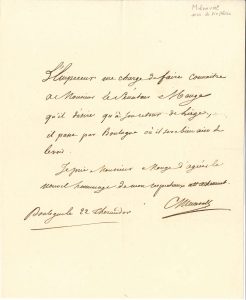 L'Empereur me charge de faire connaitre
à Monsieur le Sénateur Monge
qu'il désire qu'à son retour de Liège,
il passe par Boulogne où il sera bien aise de
le voir.
Je prie Monsieur Monge d'agréer le
nouvel hommage de mon respectueux attachement.
Boulogne le 22 thermidor